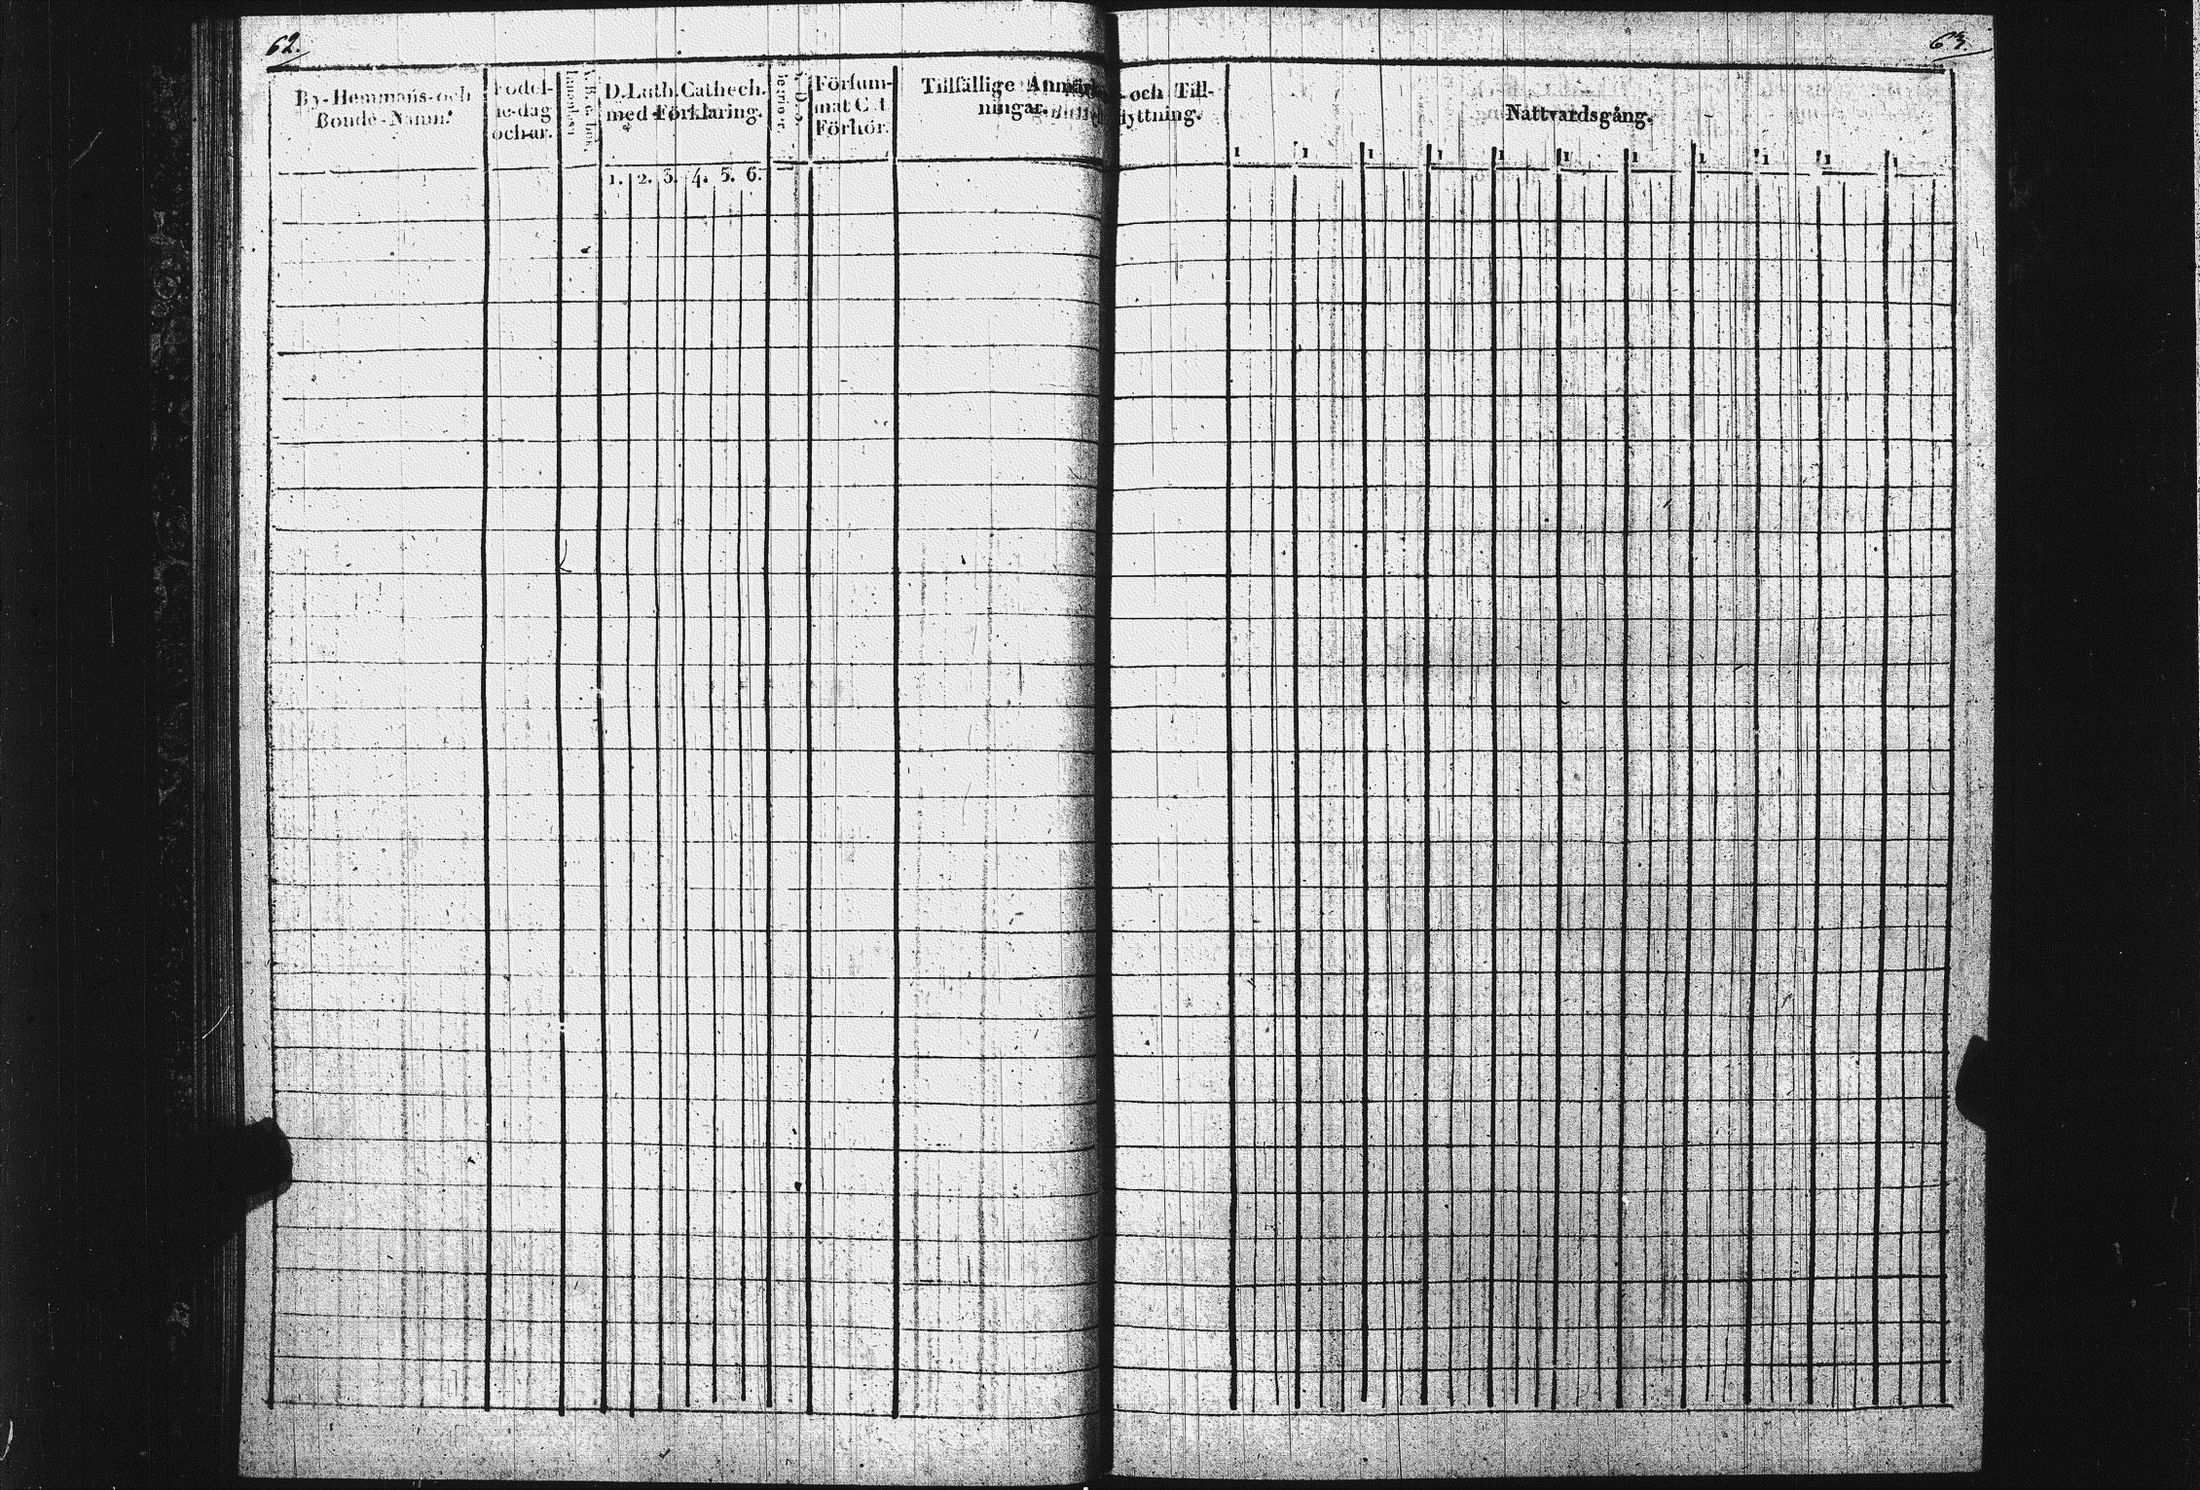 62.
By-Hemmans-och
Bonde-Namn.
Födel-
se-dag
och ar.
D. Luth. Cathech.
med Förklaring.
1. 2. 3. 4. 5. 6.
Försum-
mat C.t
Förhör.
Tillfällige Anmärk-
ningar.
och Till-
flyttning.
63.
Nattvardsgång.
1 1 1 1 1 1 1 1 1 1 1